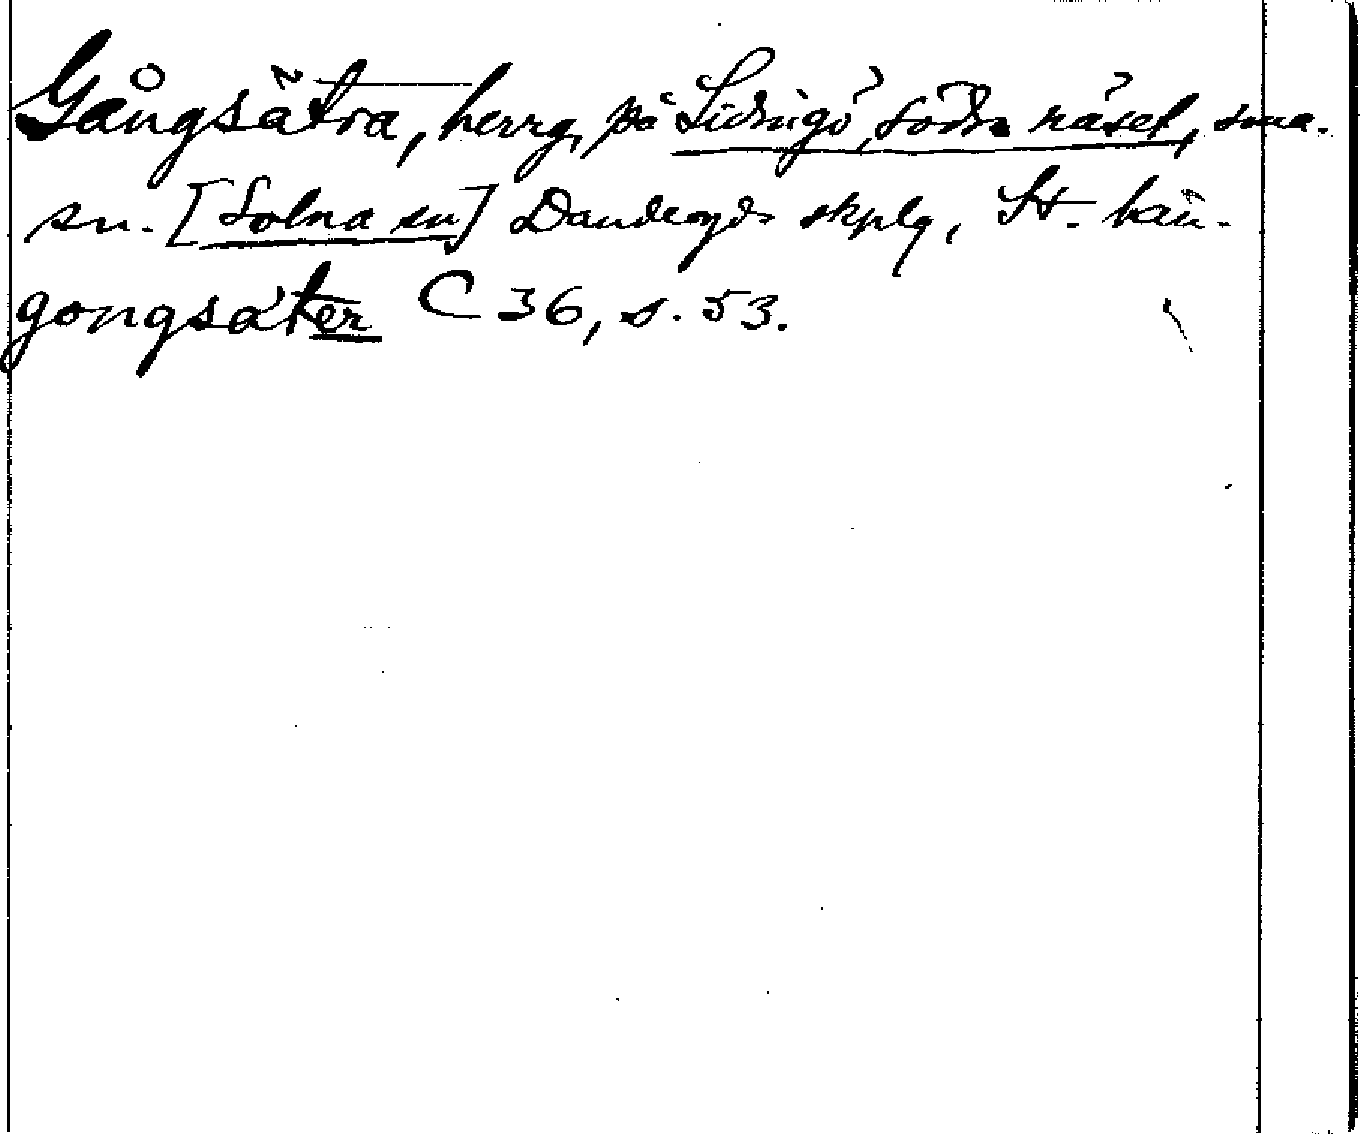 Gångsätra, herrg, på Lidingö, södra näset, sma.
sn. [Solna sn] Danderyds skplg, St. län.
gongsäter C 36, s. 53.